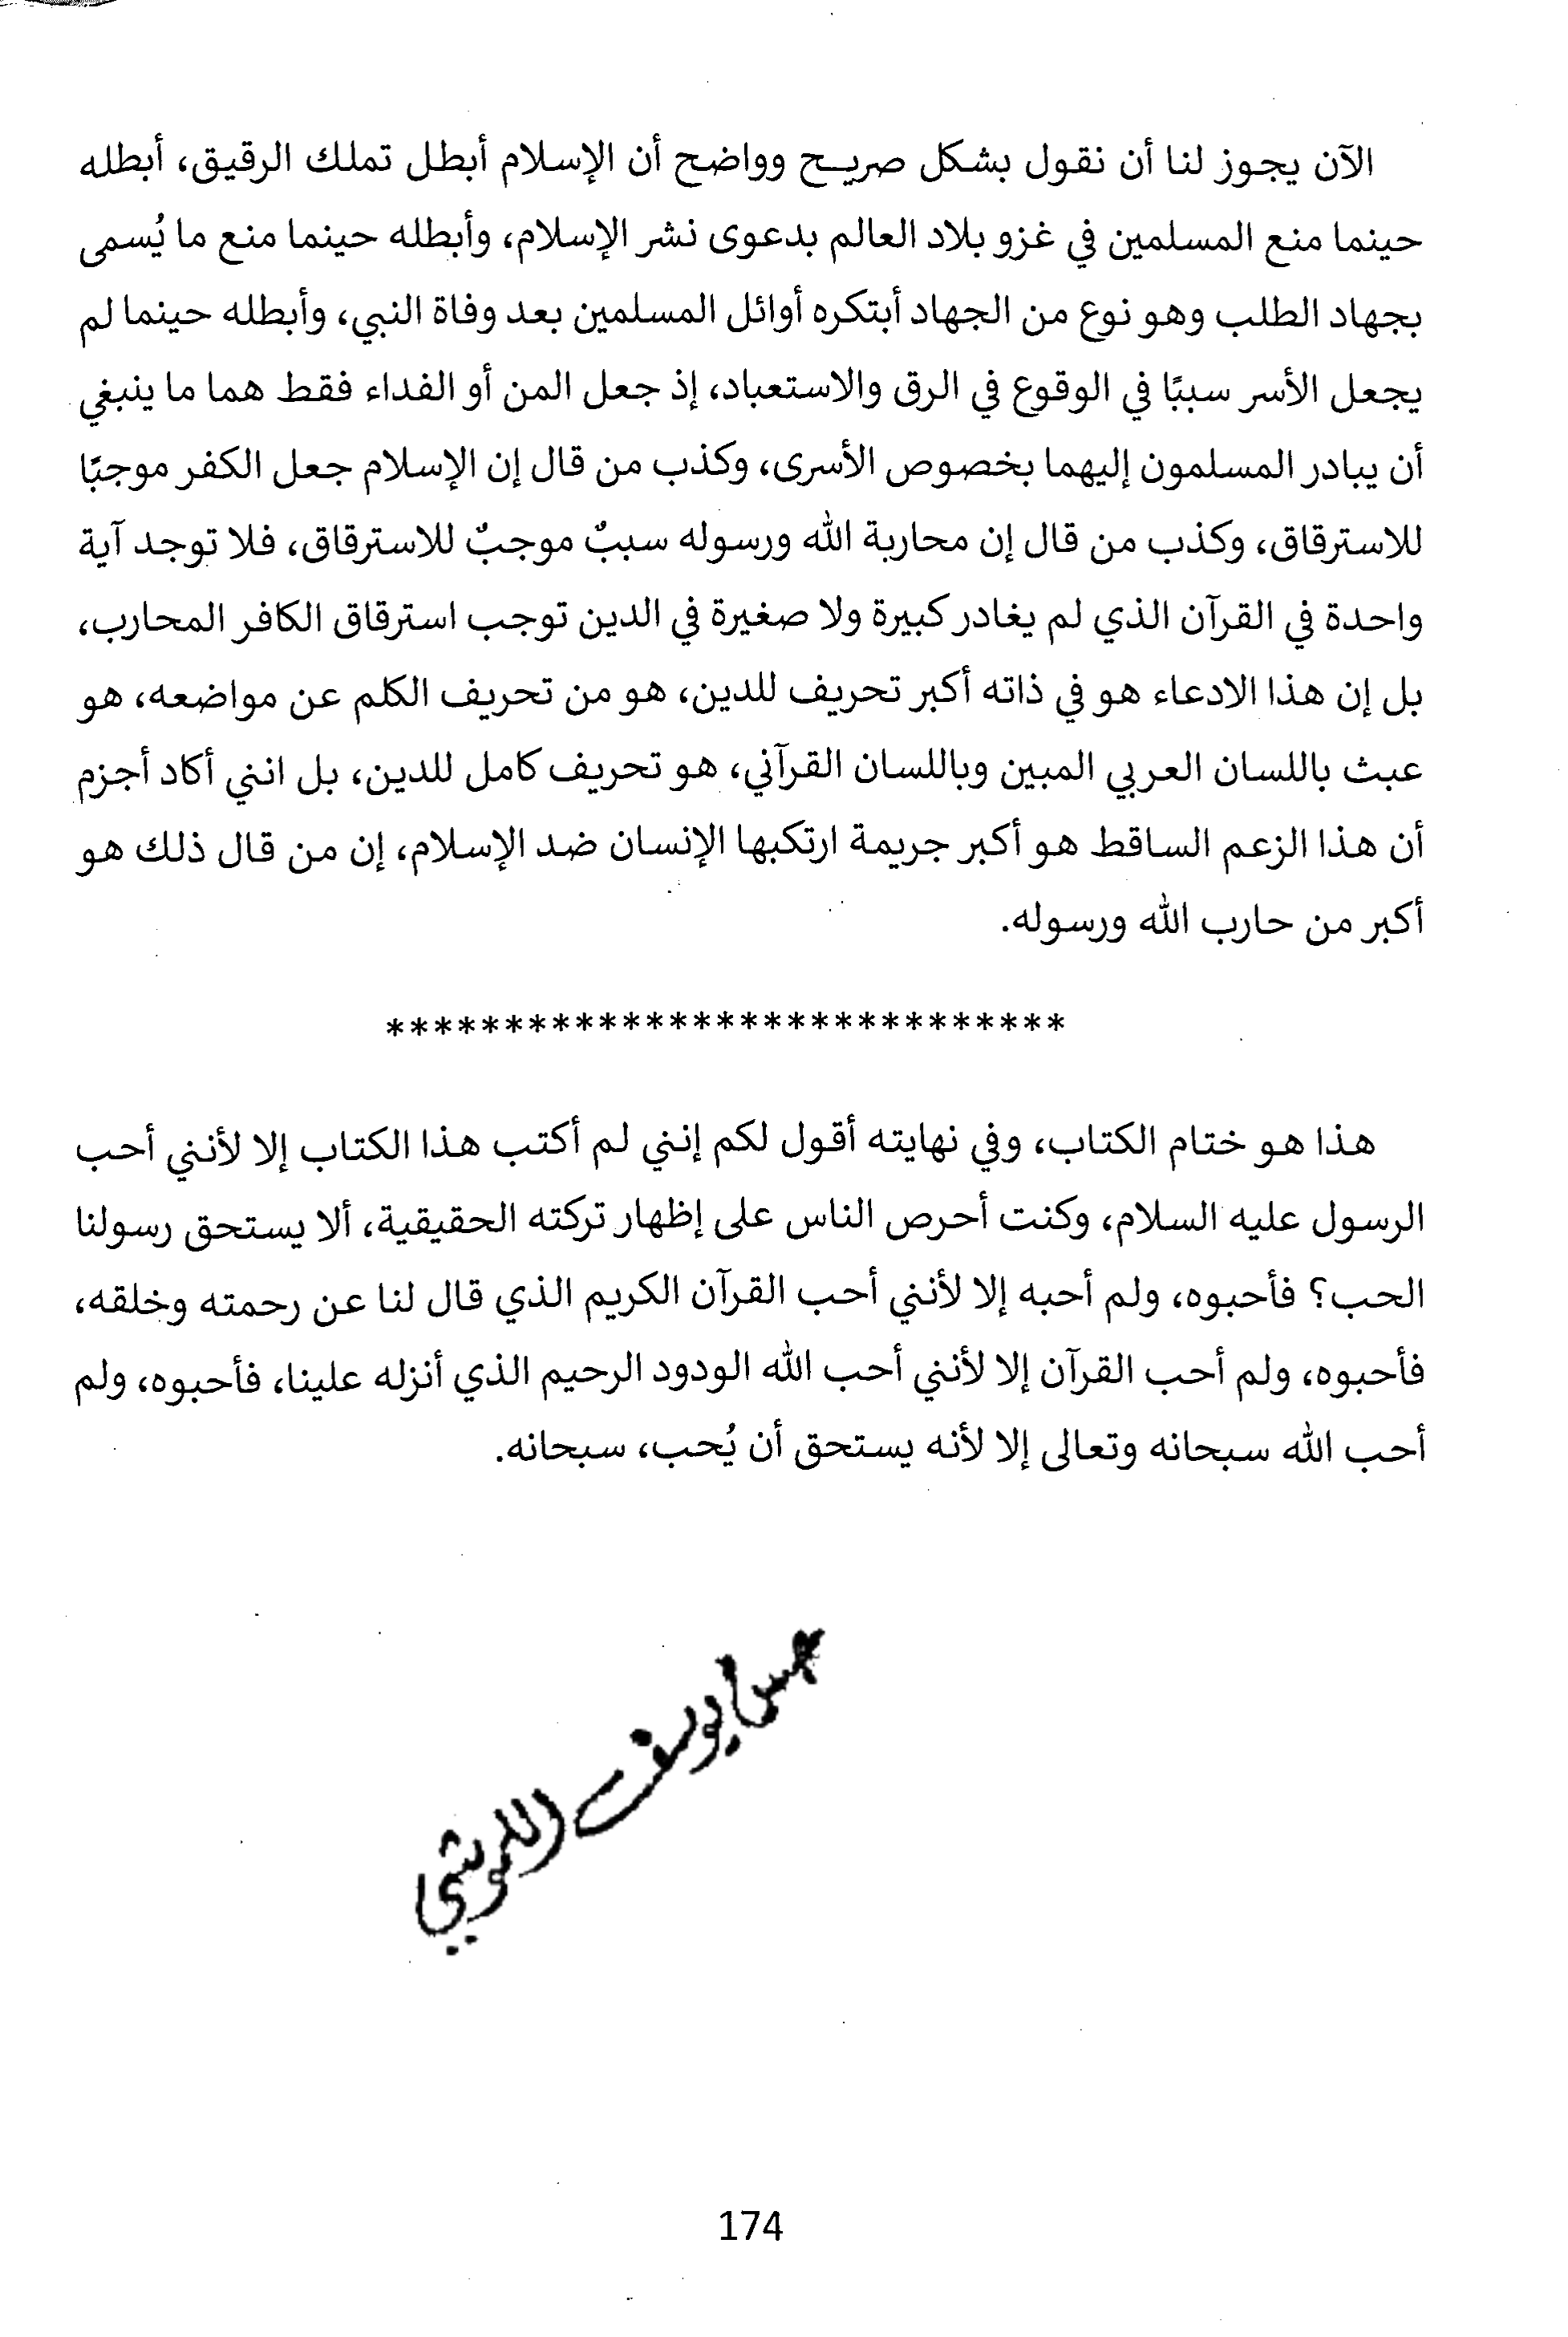 الآن يجوز لنا أن نقول بشكل صريح وواضح أن الإسلام أبطل تملك الرقيق، أبطله
حينما منع المسلمين في غزو بلاد العالم بدعوى نشر الإسلام، وأبطله حينما منع ما يُسمى
بجهاد الطلب وهو نوع من الجهاد أبتكره أوائل المسلمين بعد وفاة النبي، وأبطله حينما لم
يجعل الأسر سببًا في الوقوع في الرق والاستعباد، إذ جعل المن أو الفداء فقط هما ما ينبغي
أن يبادر المسلمون إليهما بخصوص الأسرى، وكذب من قال إن الإسلام جعل الكفر موجبًا
للاسترقاق، وكذب من قال إن محاربة الله ورسوله سببٌ موجبٌ للاسترقاق، فلا توجد آية
واحدة في القرآن الذي لم يغادر كبيرة ولا صغيرة في الدين توجب استرقاق الكافر المحارب،
بل إن هذا الادعاء هو في ذاته أكبر تحريف للدين، هو من تحريف الكلم عن مواضعه، هو
عبث باللسان العربي المبين وباللسان القرآني، هو تحريف كامل للدين، بل انني أكاد أجزم
أن هذا الزعم الساقط هو أكبر جريمة ارتكبها الإنسان ضد الإسلام، إن من قال ذلك هو
أكبر من حارب الله ورسوله.
*****************************
هذا هو ختام الكتاب، وفي نهايته أقول لكم إنني لم أكتب هذا الكتاب إلا لأنني أحب
الرسول عليه السلام، وكنت أحرص الناس على إظهار تركته الحقيقية، ألا يستحق رسولنا
الحب؟ فأحبوه، ولم أحبه إلا لأنني أحب القرآن الكريم الذي قال لنا عن رحمته وخلقه،
فأحبوه، ولم أحب القرآن إلا لأنني أحب الله الودود الرحيم الذي أنزله علينا، فأحبوه، ولم
أحب الله سبحانه وتعالى إلا لأنه يستحق أن يُحب، سبحانه.
يوسف
174